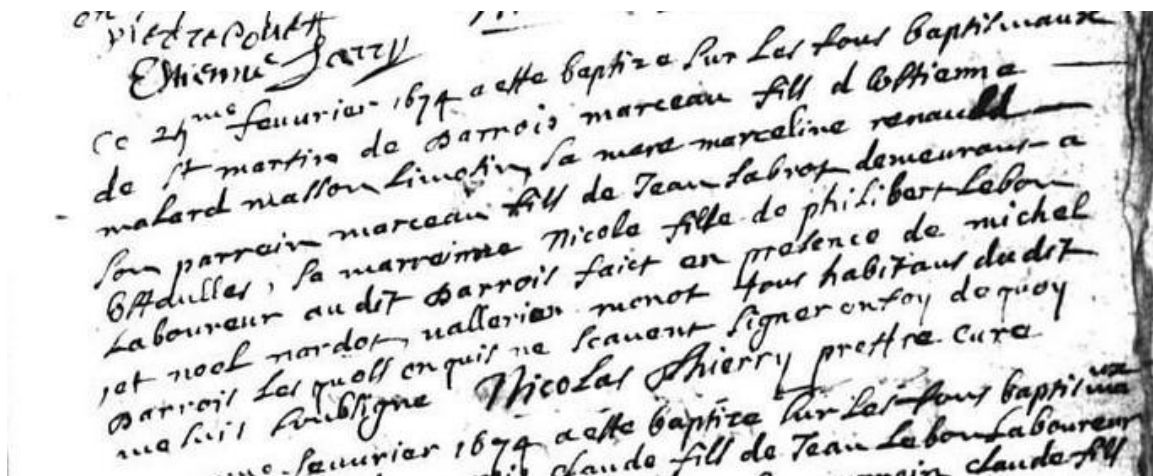 pietrequett
Estienne Jarry
Ce 24me feuurier 1674 a este baptize sur les fons baptismaux
de st martin de Darrois marceau fill d Estienne
malard masson Limosin, sa mere marceline renauld
son parrein marceau fill de Jean Labrot demeurans a
Estaulles, sa marreinne Nicole fille de philibert Lebon
Laboureur audit Darrois faict en presence de michel
et noel nardot, vallerien monot tous habitans dudit
Darrois les quels enquis ne scauent signer en foy de quoy
me suis soubsigne Nicolas Thierry prestre cure
feuurier 1674 a este baptize sur les fons baptismaux
claude fill de Jean Lebon Laboureur
parrein claude fill